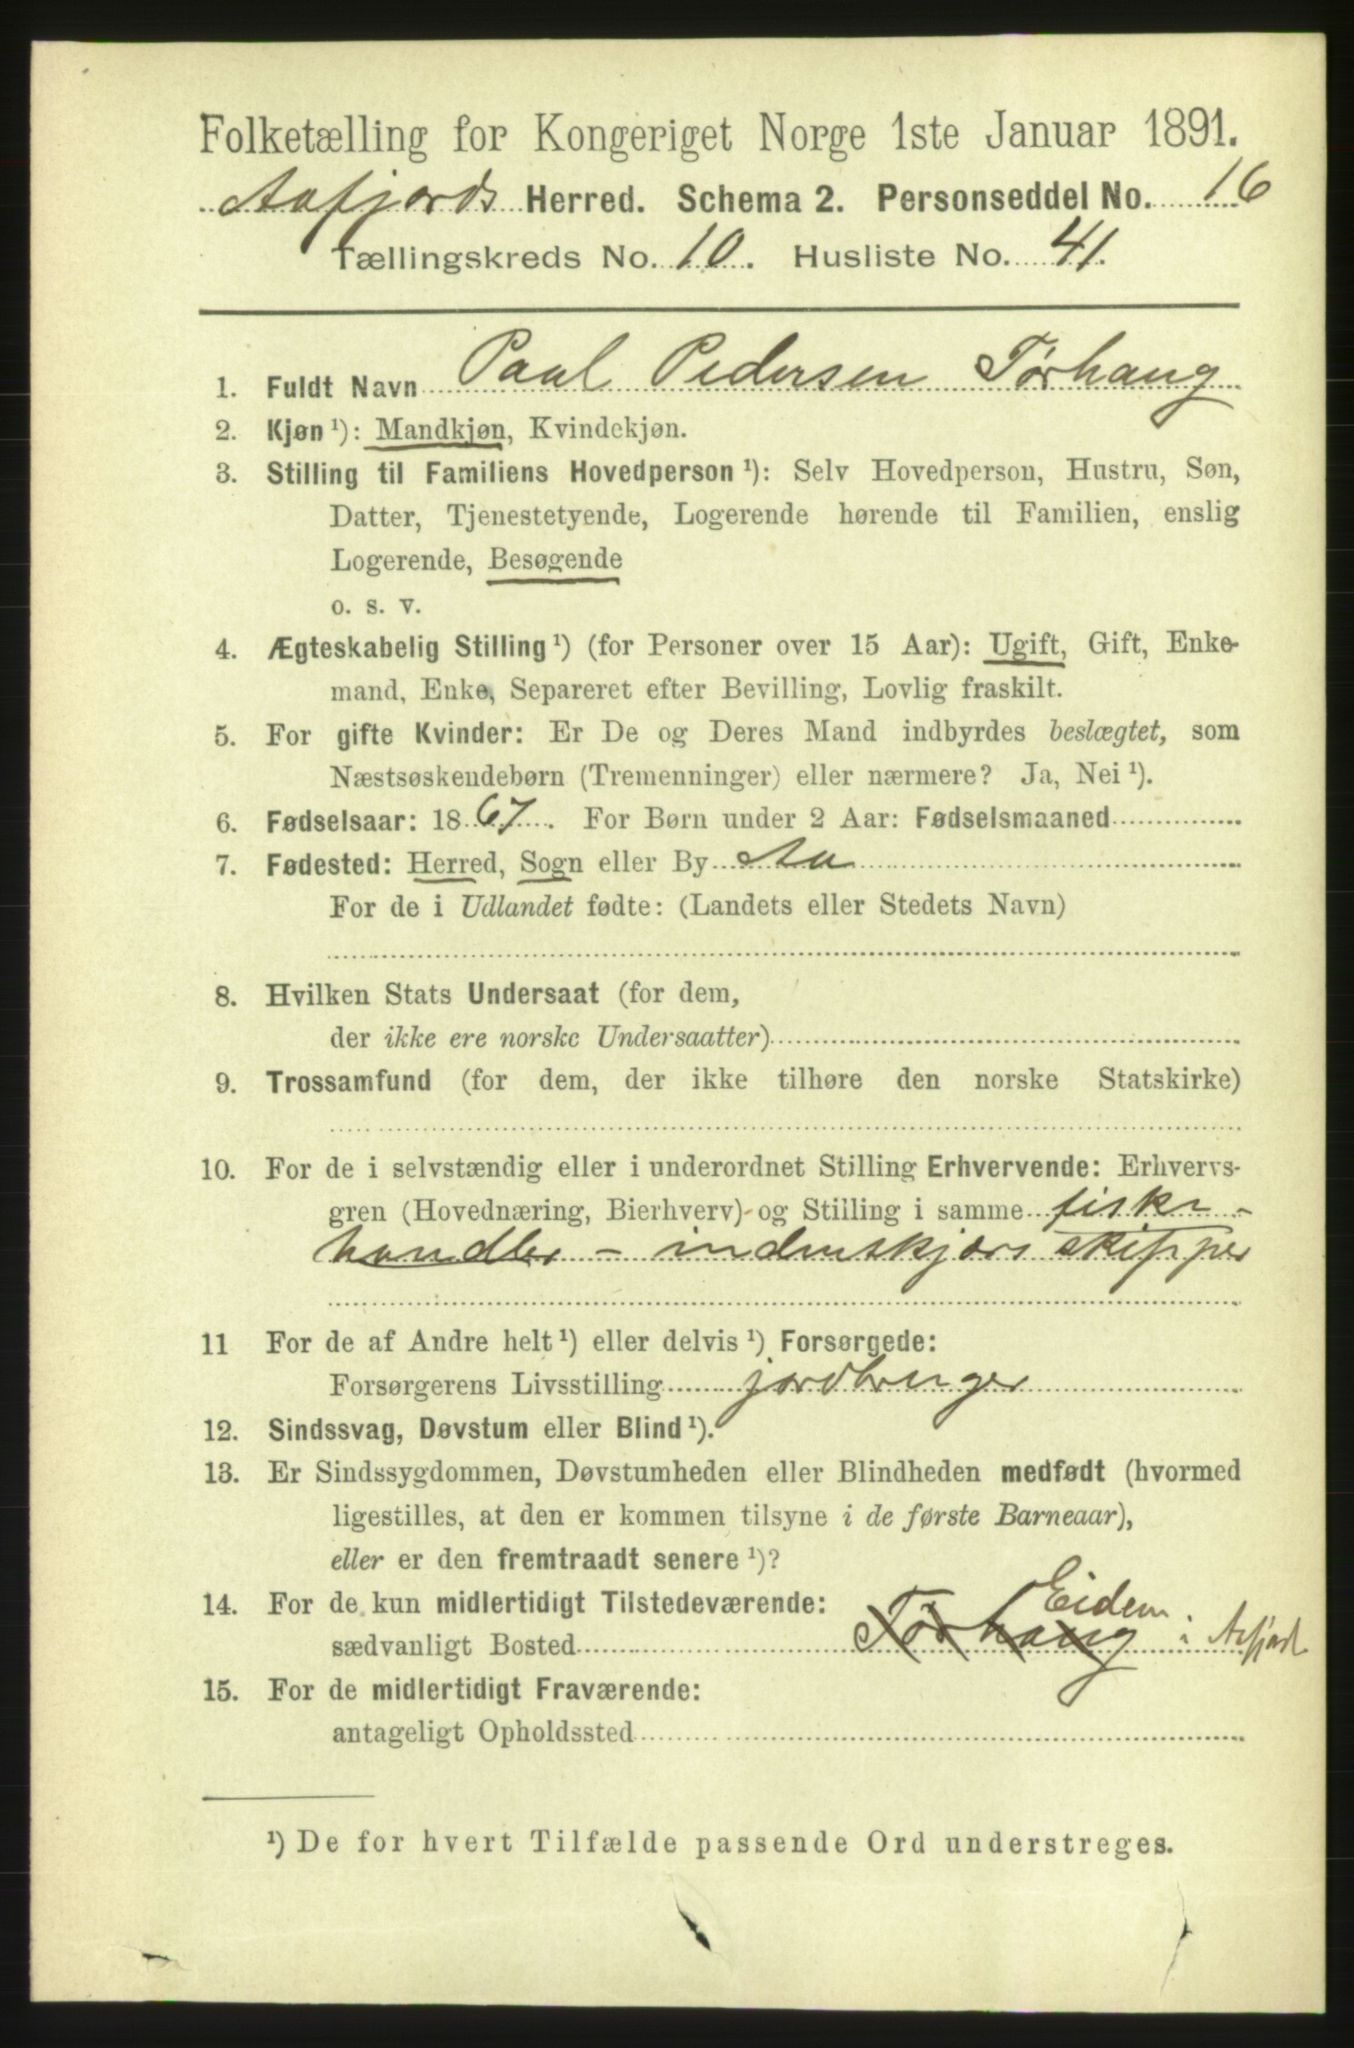 Folketælling for Kongeriget Norge 1ste Januar 1891.
Aafjords Herred. Schema 2. Personseddel No. 16
Tællingskreds No. 10. Husliste No. 41.
1. Fuldt Navn Paul Pedersen Tørhaug
2. Kjøn ¹): Mandkjøn, Kvindekjøn.
3. Stilling til Familiens Hovedperson ¹): Selv Hovedperson, Hustru, Søn,
Datter, Tjenestetyende, Logerende hørende til Familien, enslig
Logerende, Besøgende
o. s. v.
4. Ægteskabelig Stilling ¹) (for Personer over 15 Aar): Ugift, Gift, Enke-
mand, Enke, Separeret efter Bevilling, Lovlig fraskilt.
5. For gifte Kvinder: Er De og Deres Mand indbyrdes beslægtet, som
Næstsøskendebørn (Tremenninger) eller nærmere? Ja, Nei ¹).
6. Fødselsaar: 1867. For Børn under 2 Aar: Fødselsmaaned
7. Fødested: Herred, Sogn eller By Aa
For de i Udlandet fødte: (Landets eller Stedets Navn)
8. Hvilken Stats Undersaat (for dem,
der ikke ere norske Undersaatter)
9. Trossamfund (for dem, der ikke tilhøre den norske Statskirke)
10. For de i selvstændig eller i underordnet Stilling Erhvervende: Erhvervs-
gren (Hovednæring, Bierhverv) og Stilling i samme fiske-
handler - indenskjærs skipper
11 For de af Andre helt ¹) eller delvis ¹) Forsørgede:
Forsørgerens Livsstilling jordbruger
12. Sindssvag, Døvstum eller Blind ¹).
13. Er Sindssygdommen, Døvstumheden eller Blindheden medfødt (hvormed
ligestilles, at den er kommen tilsyne i de første Barneaar),
eller er den fremtraadt senere ¹)?
14. For de kun midlertidigt Tilstedeværende: Eidem
sædvanligt Bosted Tørhaug i Aafjord
15. For de midlertidigt Fraværende:
antageligt Opholdssted
¹) De for hvert Tilfælde passende Ord understreges.